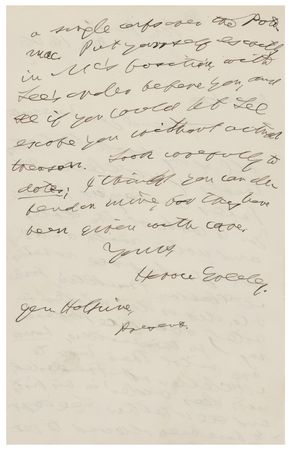 a single corps over the Poto-
mac. Put yourself exactly
in Mc's position with
Lee's order before you, and
see if you could let Lee
escape you without actual
treason. Look carefully to
dates; I think you can de-
pend on mine, as they have
been given with care.
Yours,
Horace Greeley.
Gen. Halpine,